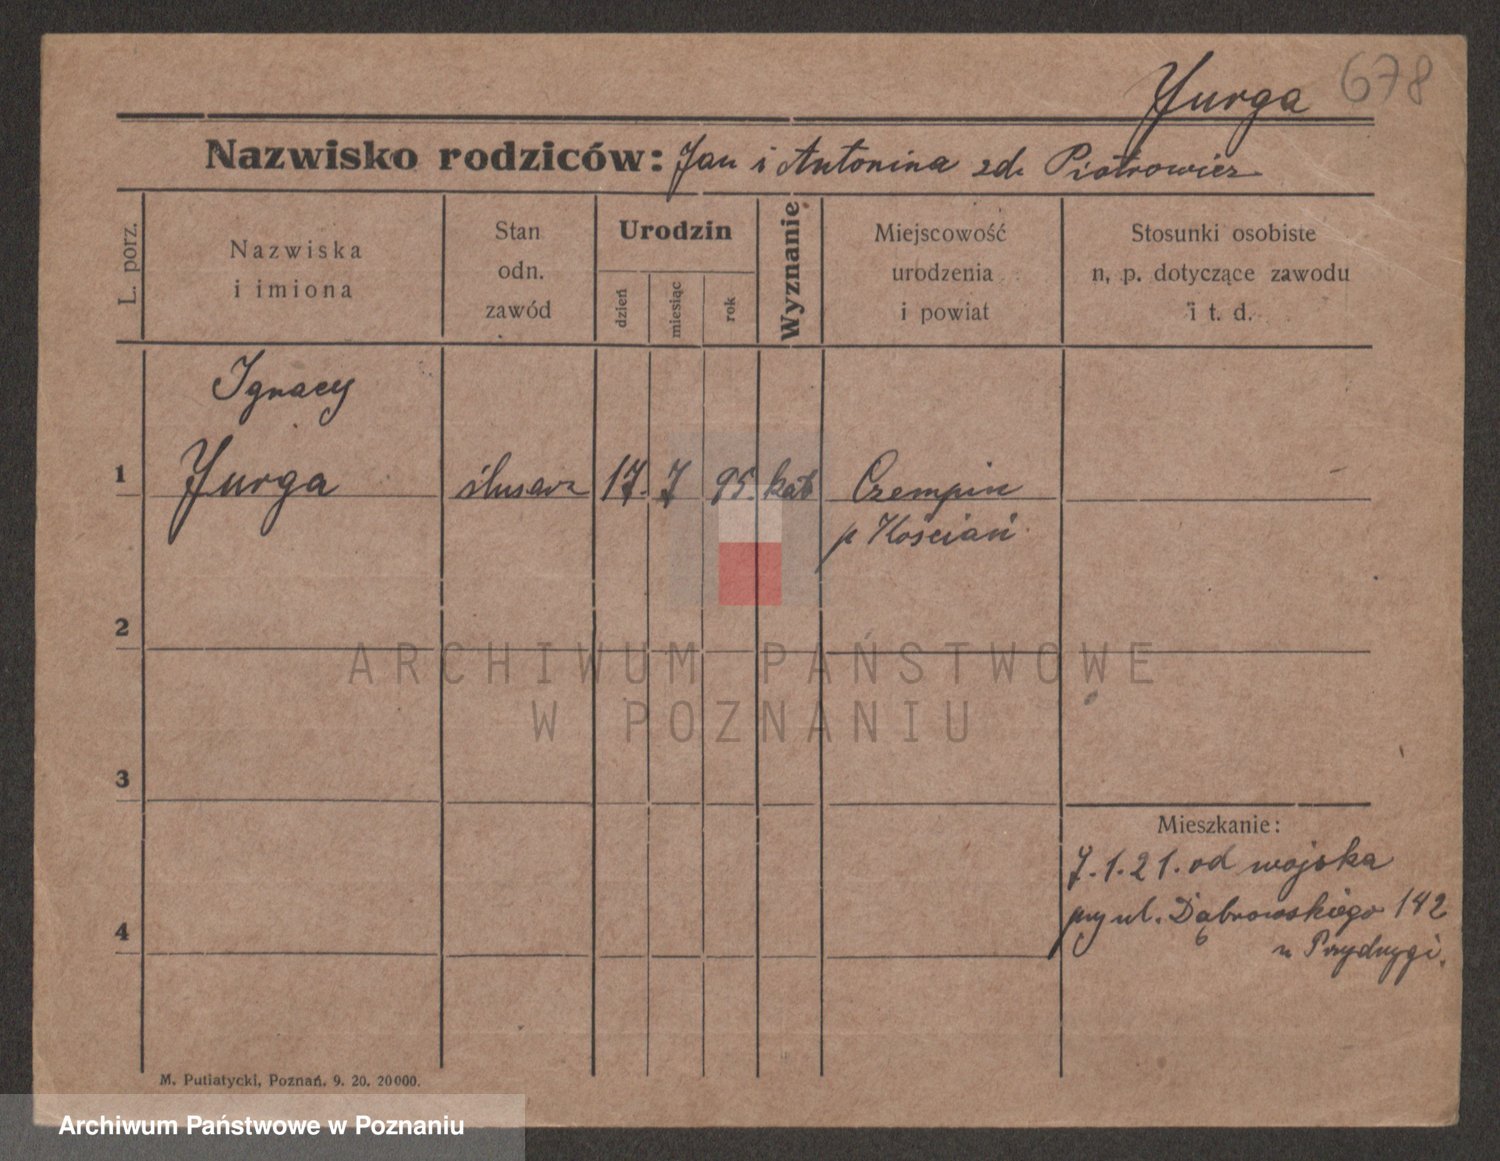 Jurga 678
Nazwisko rodziców: Jan i Antonina zd. Piotrowicz
L. porz.
Nazwiska
i imiona
Stan
odn.
zawód
Urodzin
dzień
miesiąc
rok
Wyznanie
Miejscowość
urodzenia
i powiat
Stosunki osobiste
n, p. dotyczące zawodu
i t. d.
Ignacy
1 Jurga ślusarz 17. 7 95. kat Czempiń —
p Kościan
2
ARCHIWUM PAŃSTWOWE
W POZNANIU
3
Mieszkanie:
7.1.21. od wojska
przy ul. Dąbrowskiego 142
4
u
M. Putiatycki, Poznań. 9. 20. 20000.
Archiwum Państwowe w Poznaniu